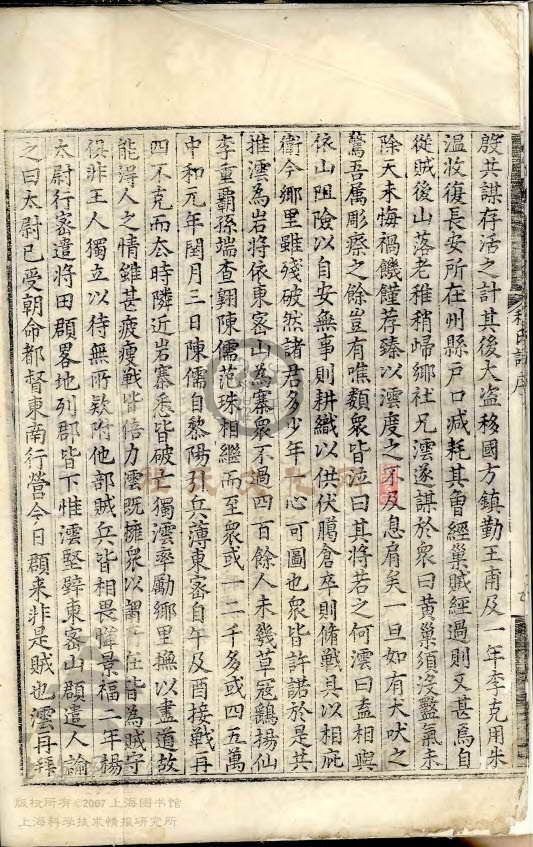 殷共謀存活之計其後大盗移國方鎮勤王甫及一年李克用朱
温收復長安所在州縣戸口減耗其曽經巢賊經過則又甚焉自
從賊後山落老稚稍歸郷社兄澐遂謀於衆曰黄巢須没盭氣未
除天未悔禍饑饉荐臻以澐度之未及息肩矣一旦如有犬吠之
驚吾属彫瘵之餘豈有噍類衆皆泣曰其將若之何澐曰盍相與
依山阻險以自安無事則耕織以供伏臈倉卒則脩戦具以相庇
衛今郷里雖殘破然諸君多少年 心可圖也衆皆許諾於是共
推澐為岩將依東宻山為寨衆不過四百餘人未幾草冦鷂揚仙
李重霸孫端查翺陳儒范珠相繼而至衆或一二千多或四五萬
中和元年閏月三日陳儒自黎陽 兵薄東宻自午及酉接戦再
四不克而去時隣近岩寨悉皆破 獨澐率勵郷里撫以盡道故
能得人之情雖甚疲瘦戦皆倍力澐既擁衆以 在皆為賊守
俟非王人獨立以待無所欵附他部賊兵皆相畏憚景福二年楊
太尉行宻遣將田頵畧地列郡皆下惟澐堅壁東宻山頵遣人諭
之曰太尉已受朝命都督東南行營今日頵来非是賊也澐再拜
程氏譜序
版权所有©2007上海图书馆
上海科学技术情报研究所